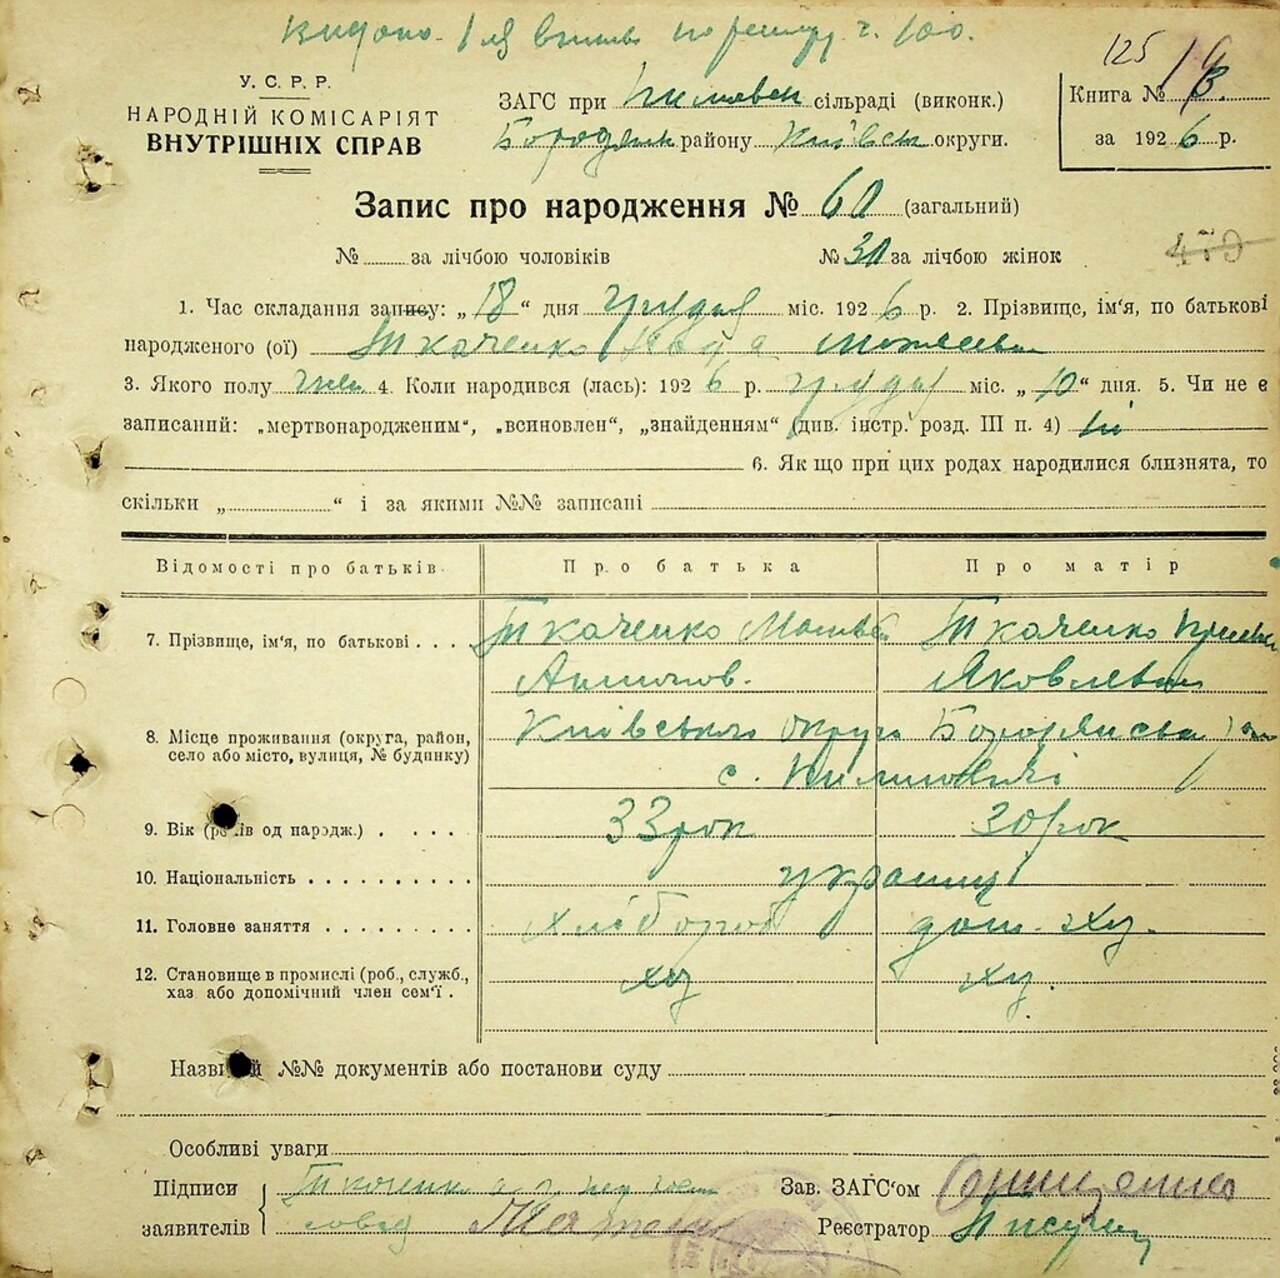 125
У. С. Р. Р.
НАРОДНІЙ КОМІСАРІЯТ
ВНУТРІШНІХ СПРАВ
ЗАГС при сільраді (виконк.)
Бородян району Київськ округи.
Книга №
за 1926 р.
Запис про народження № 60 (загальний)
№ за лічбою чоловіків № 30 за лічбою жінок
1. Час складання запису: „18“ дня грудня міс. 1926 р. 2. Прізвище, ім'я, по батькові
народженого (ої) Ткаченко
3. Якого полу жен 4. Коли народився (лась): 1926 р. грудня міс. „10“ дня. 5. Чи не є
записаний: „мертвонародженим“, „всиновлен“, „знайденням“ (див. інстр. розд. III п. 4) ні
6. Як що при цих родах народилися близнята, то
скільки „ “ і за якими №№ записані
Відомості про батьків. Про батька Про матір
7. Прізвище, ім'я, по батькові . . . Ткаченко Матвей Ткаченко
Яковлевна
8. Місце проживання (округа, район, село або місто, вулиця, № будинку) Київського округа Бородянськ
с.
9. Вік (років од народж.) . . . . 33 рок 30 рок
10. Національність . . . . . . . . . . україн
11. Головне заняття . . . . . . . . . хлібороб дом. хаз.
12. Становище в промислі (роб., служб.,
хаз або допомічний член сем'ї . хаз хаз.
Назв й №№ документів або постанови суду
Особливі уваги
Підписи заявителів Ткаченко
Зав. ЗАГС'ом
Реєстратор